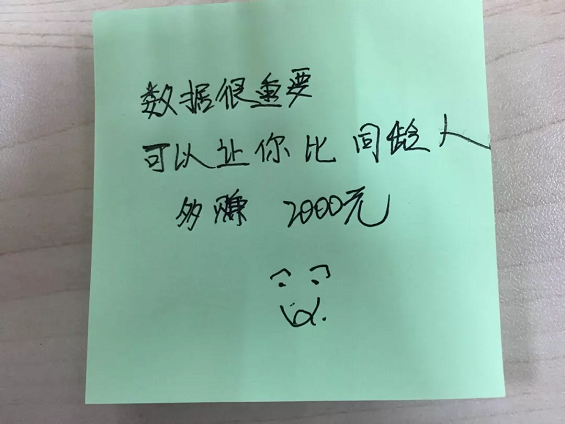 数据很重要
可以让你比同龄人
多赚 2000元